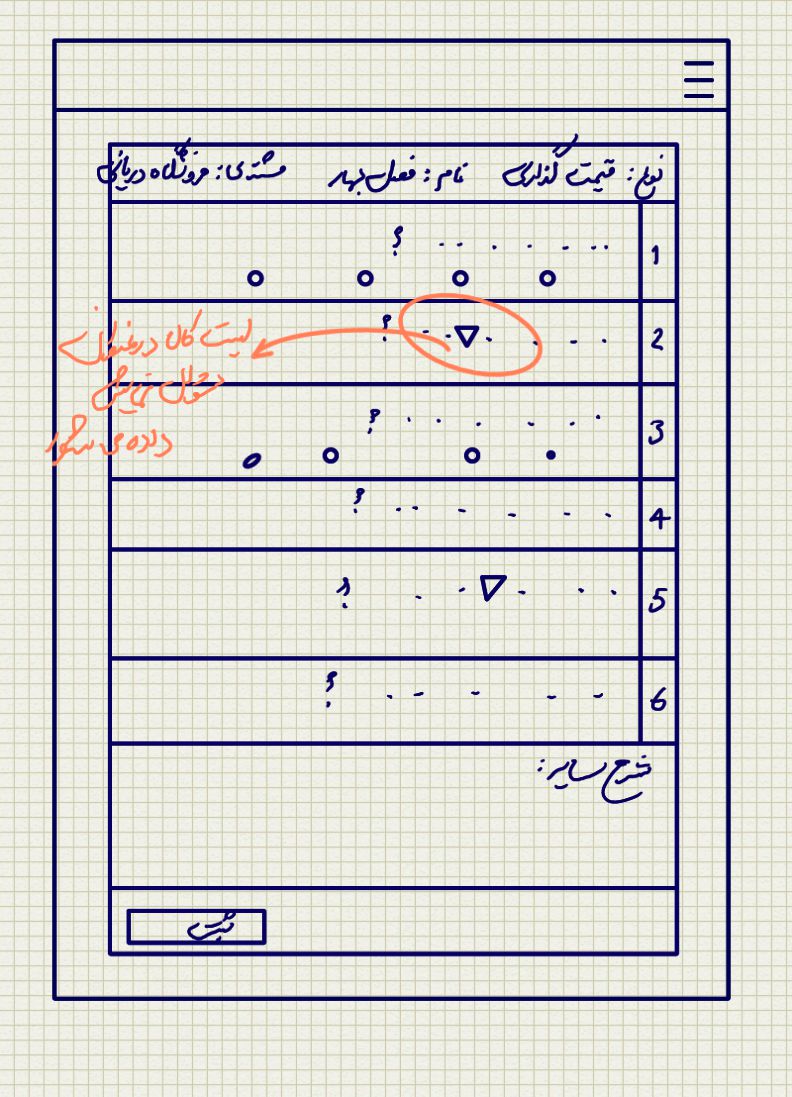 نوع: قیمت گذاری نام: فصل بهار مشتری: فروشگاه دریانی
1 ؟
2 ؟
لیست کالا در
سوال نمایش
داده می شود
3 ؟
4 ؟
5 ؟
6 ؟
شرح سایر:
ثبت